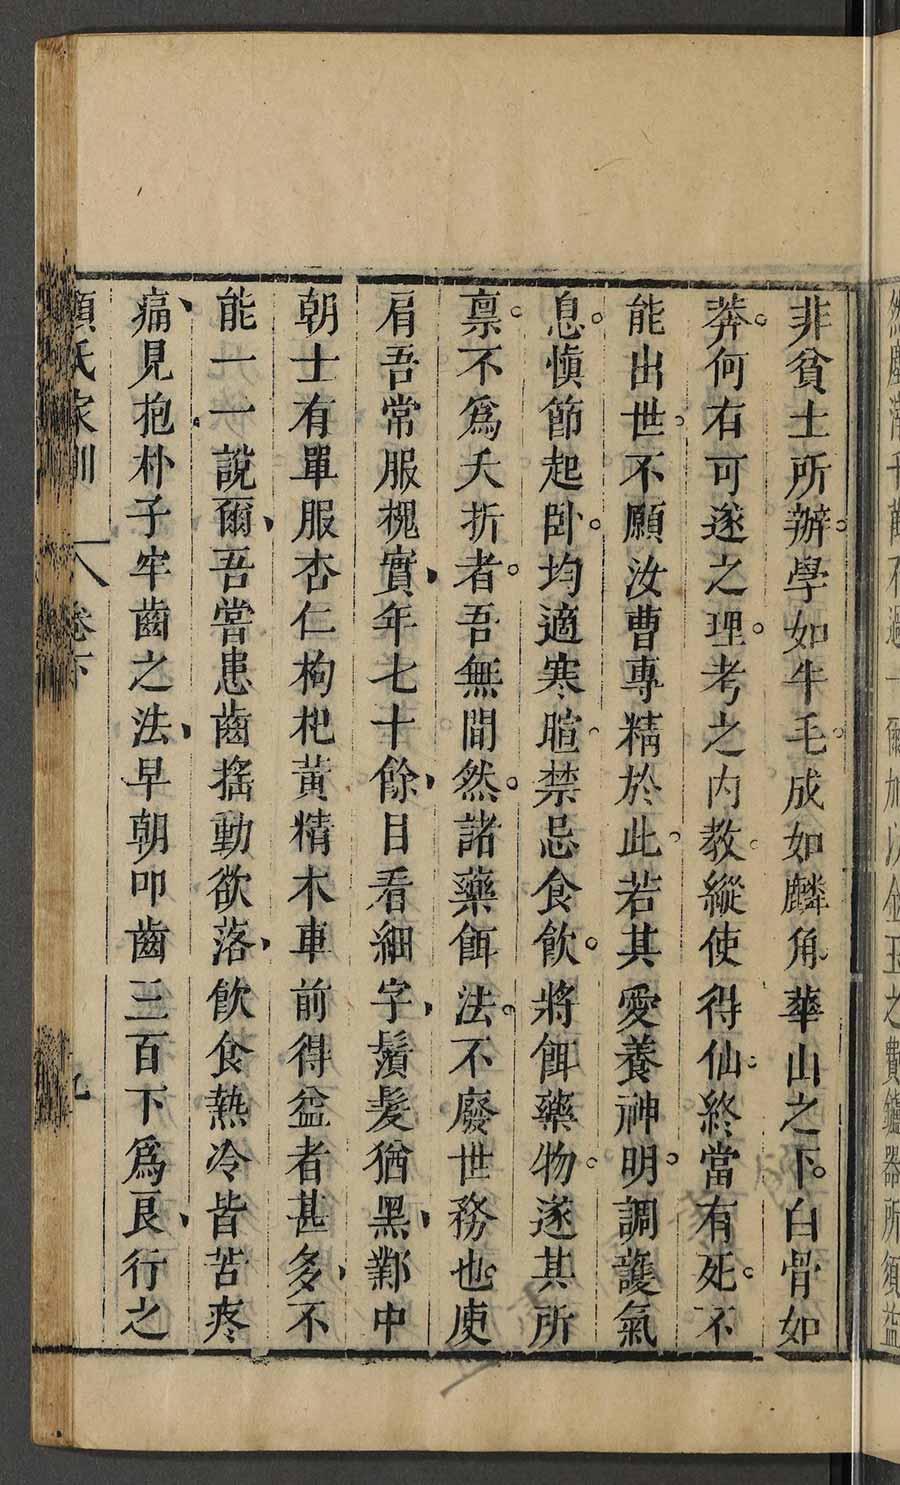 非貧士所辦學如牛毛成如麟角華山之下白骨如
莽何有可遂之理考之內教縱使得仙終當有死不
能出世不願汝曹專精於此若其愛養神明調護氣
息慎節起卧均適寒暄禁忌食飲將餌藥物遂其所
禀不爲夭折者吾無間然諸藥餌法不廢世務也庾
肩吾常服槐實年七十餘目看細字鬚髮猶黑鄴中
朝士有單服杏仁枸杞黃精木車前得益者甚多不
能一一說爾吾嘗患齒搖動欲落飲食熱冷皆苦疼
痛見抱朴子牢齒之法早朝叩齒三百下爲良行之
顏氏家訓 卷下 九